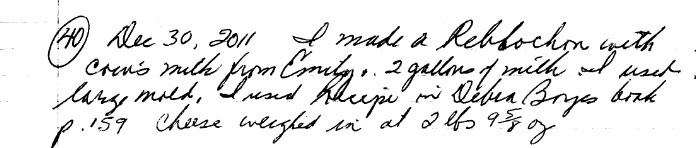 40 Dec 30, 2011 I made a Reblochon with
cow's milk from Emily. 2 gallons of milk & I used
large mold. I used Recipe in Debra Boyes book
p. 159 Cheese weighed in at 2 lbs 9 5/8 oz